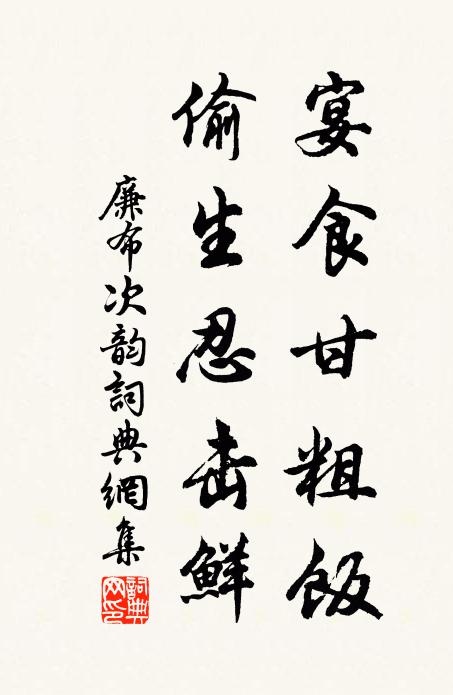 宴食甘粗飯
偷生忍击鮮
廉布次韵詞典網集
詞典网印